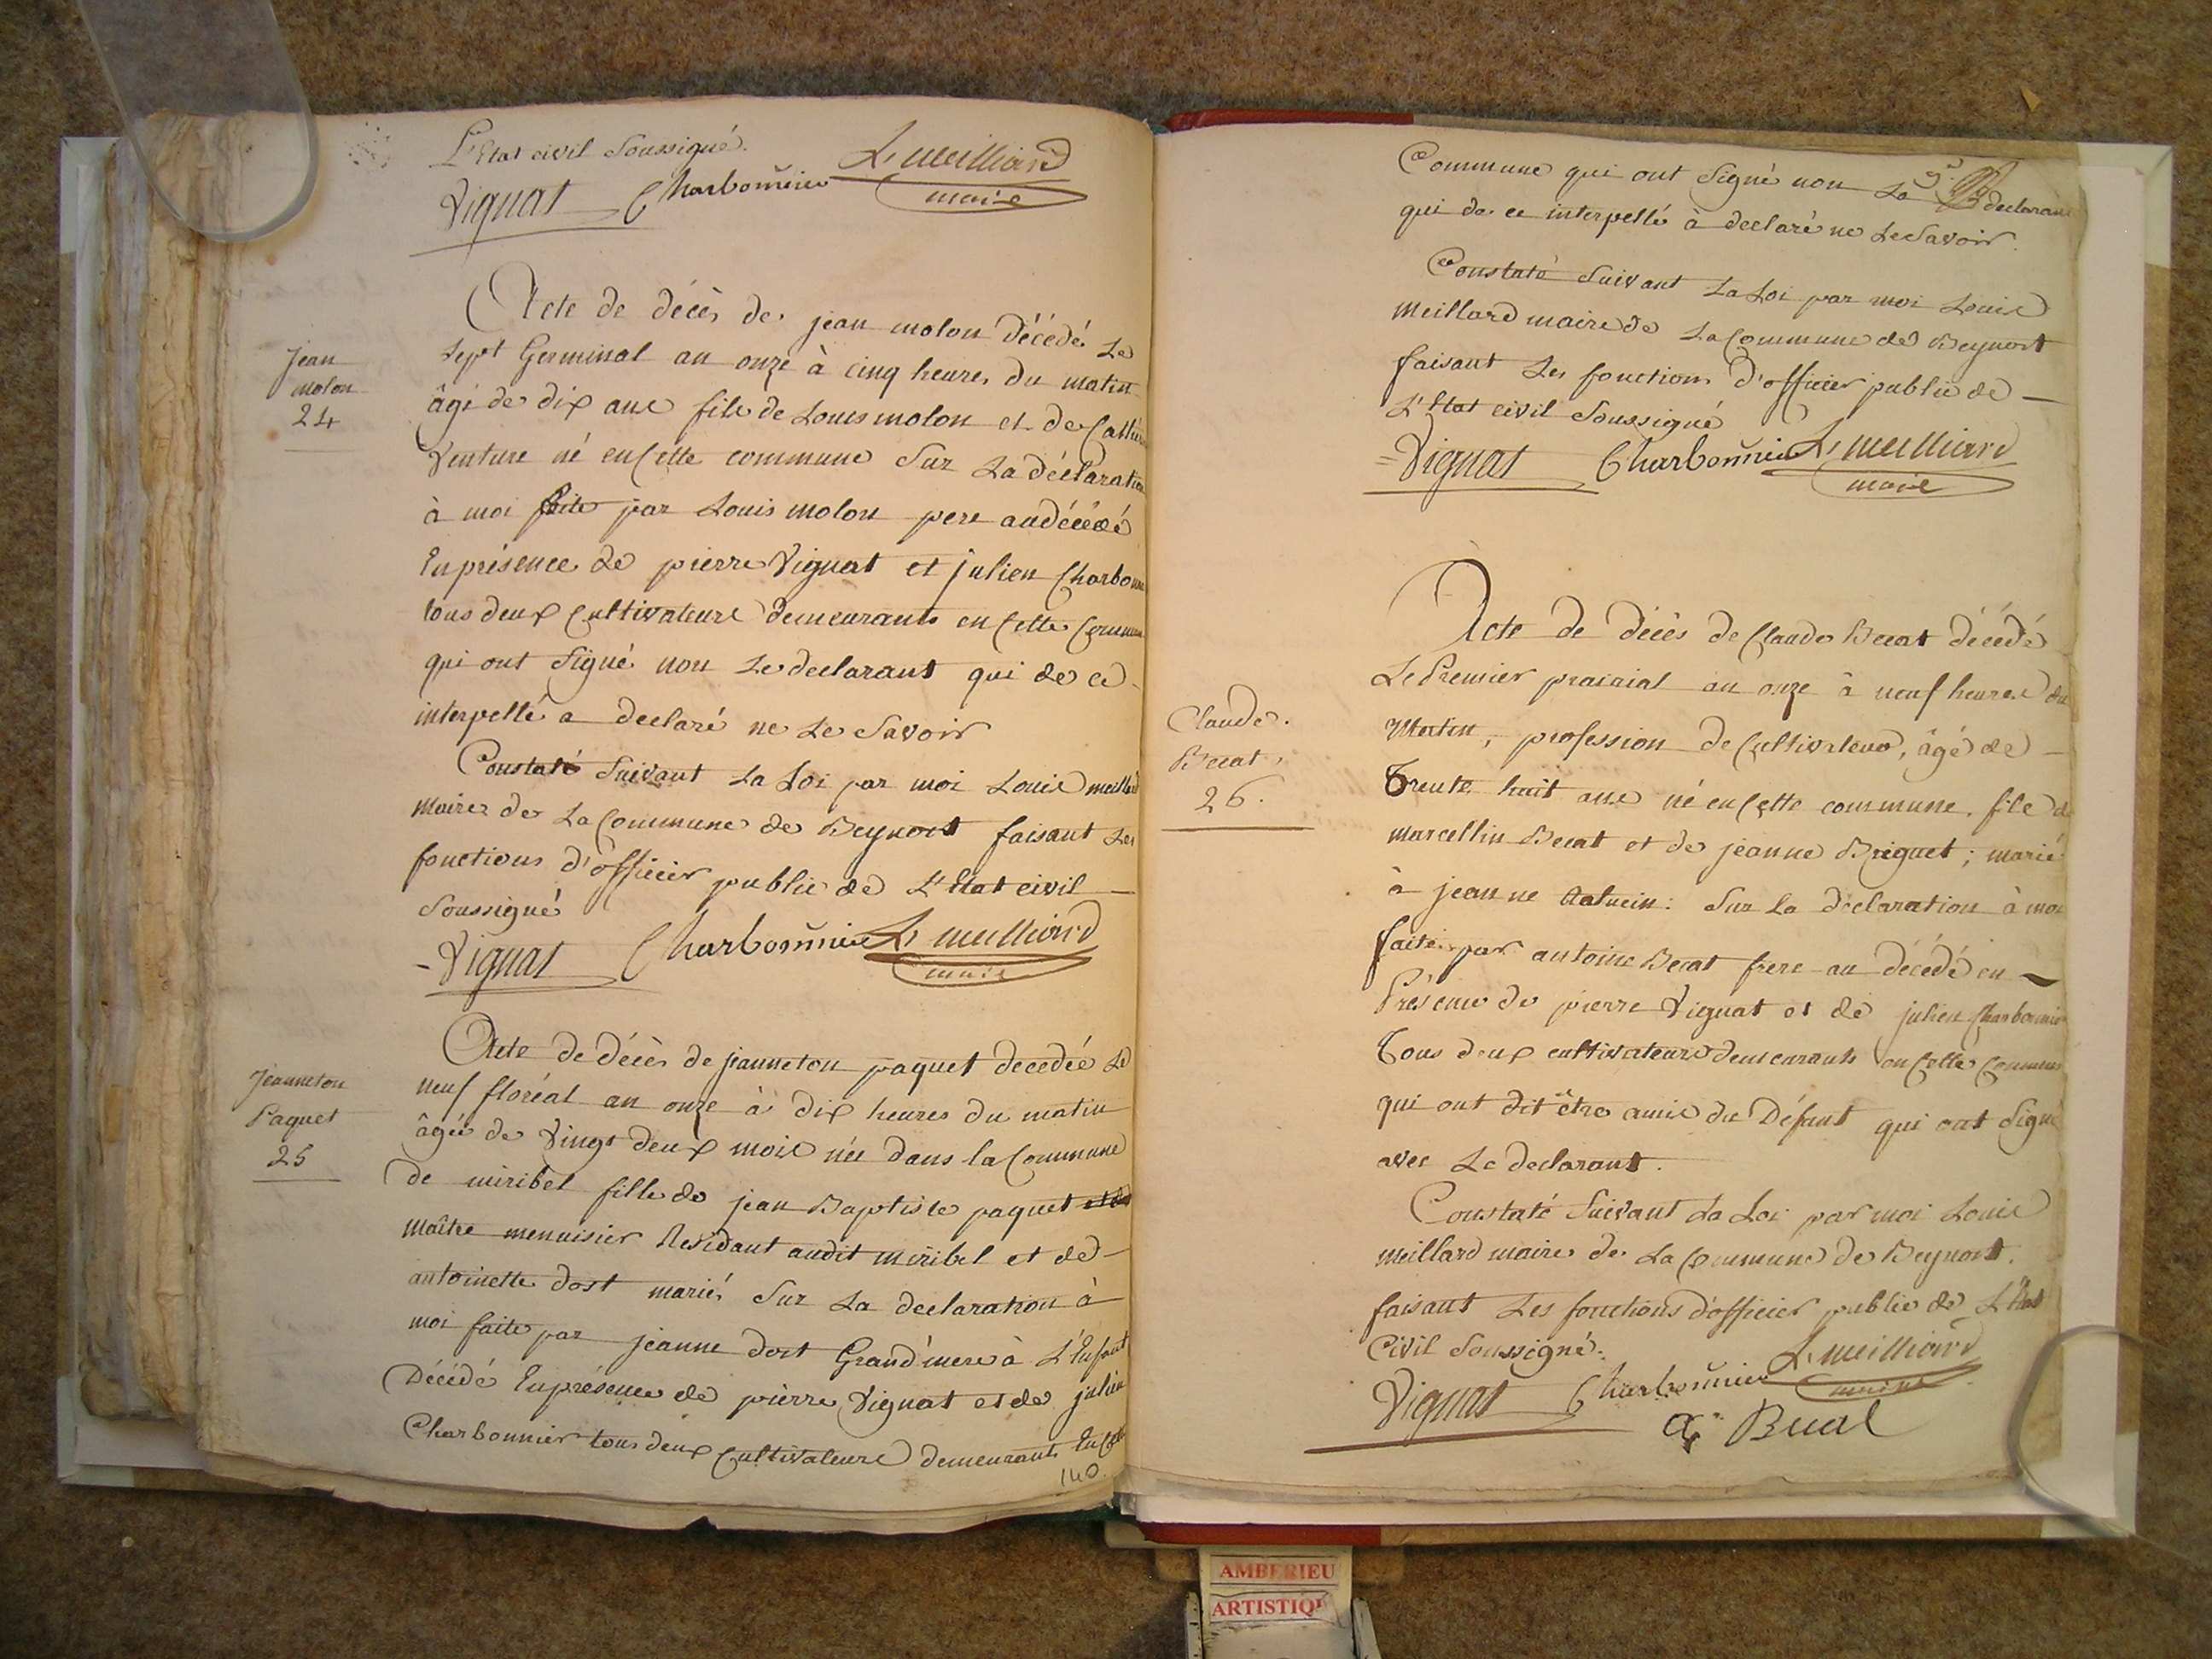 L'Etat civil Soussigné.
Vignat Charbonnier L. Meilliard
maire
Jean
molon
24
Acte de décès de jean molon décédé Le
Sept Germinal an onze à cinq heures du matin
âgé de dix ans fils de Louis molon et de Catheri
Venture né en cette commune Sur La déclaration
à moi faite par Louis molon pere au décédé
En présence de pierre Vignat et julien Charbonn
tous deux Cultivateurs demeurants en Cette Commune
qui ont Signé non Le declarant qui de ce
interpellé a declaré ne Le Savoir
Constaté Suivant La Loi par moi Louis meillard
Maire de La Commune de Beynost faisant Les
fonctions d'officier public de L'Etat civil
Soussigné
Vignat Charbonnier L. Meilliard
maire
Jeanneton
Paquet
25
Acte de décès de jeanneton paquet decedée Le
neuf floréal an onze à dix heures du matin
âgée de Vingt deux mois née dans la Commune
de miribel fille de jean Baptiste paquet et de
maître menuisier Residant audit miribel et de
antoinette dost mariés Sur La declaration à
moi faite par jeanne dost Grand'mere à L'Enfant
Décédé En présence de pierre Vignat et de julien
Charbonnier tous deux Cultivateurs demeurants En Cette
140.
Commune qui ont Signé non La declarant
qui de ce interpellé à declaré ne Le Savoir.
Constaté Suivant La Loi par moi Louis
Meillard maire de La Commune de Beynost
faisant Les fonctions d'officier public de
L'Etat civil Soussigné
Vignat Charbonnier L. Meilliard
maire
Claude.
Becat,
26.
Acte de décès de Claude Becat décédé
Le Premier prairial an onze à neuf heures du
Matin, profession de Cultivateur, âgé de
Trente huit ans né en Cette commune. fils de
marcellin Becat et de jeanne Briguet; marié
à jeanne : Sur La déclaration à moi
faite par antoine Becat frere au décédé en
Présence de pierre Vignat et de julien Charbonnier
Tous deux cultivateurs demeurants en Cette Commune
qui ont dit être amis du Défunt qui ont Signé
avec Le declarant.
Constaté Suivant La Loi par moi Louis
meillard maire de La Commune de Beynost.
faisant Les fonctions d'officier public de L'Etat
Civil Soussigné.
Vignat Charbonnier L. Meilliard
maire
AMBERIEU
ARTISTIQU